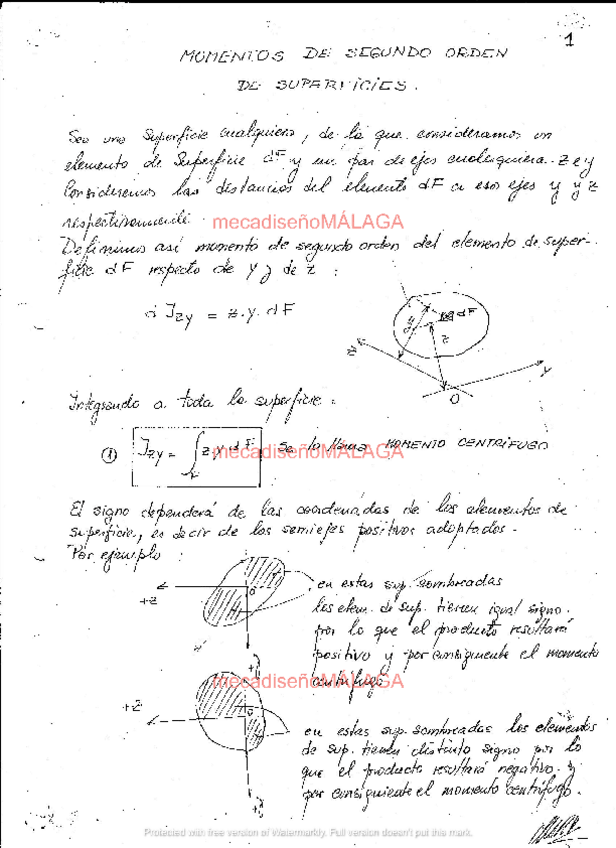 1
MOMENTOS DE SEGUNDO ORDEN
DE SUPERFICIES.
Sea una Superficie cualquiera, de la que consideramos un
elemento de Superficie dF y un par de ejes cualesquiera z e y
Consideremos las distancias del elemento dF a esos ejes y y z
respectivamente.
mecadiseñoMÁLAGA
Definimos así momento de segundo orden del elemento de super-
ficie dF respecto de y y de z :
d Jzy = z.y.dF
dF
y
z
z
y
O
Integrando a toda la superficie:
① Jzy = ∫F z.y.dF Se la llama MOMENTO CENTRÍFUGO
mecadiseñoMÁLAGA
El signo dependerá de las coordenadas de los elementos de
superficie, es decir de los semiejes positivos adoptados.
Por ejemplo :
+z
O
+y
en estas sup. sombreadas
los elem. de sup. tienen igual signo.
por lo que el producto resultará
positivo y por consiguiente el momento
centrífugo
mecadiseñoMÁLAGA
+z
O
+y
en estas sup. sombreadas los elementos
de sup. tienen distinto signo por lo
que el producto resultará negativo y
por consiguiente el momento centrífugo.
Protected with free version of Watermarkly. Full version doesn't put this mark.